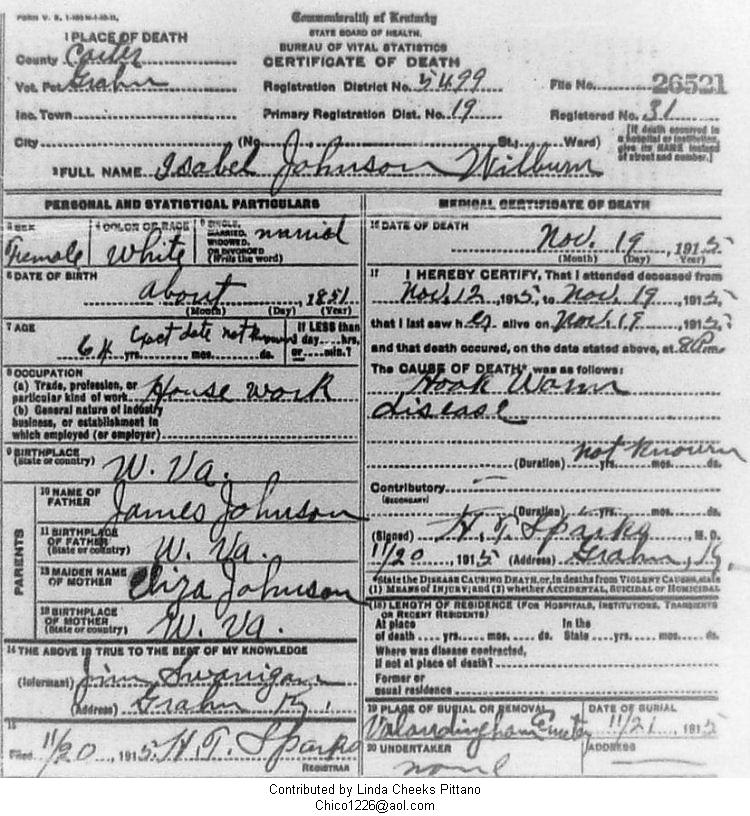 FORM V. S. 1-
Commonwealth of Kentucky
STATE BOARD OF HEALTH.
BUREAU OF VITAL STATISTICS
CERTIFICATE OF DEATH
1 PLACE OF DEATH
County Carter
Vot. Pct Grahn
Inc. Town
City
Registration District No. 5499
File No. 26521
Primary Registration Dist. No. 19
Registered No. 31
(No. St.; Ward)
[If death occurred in a hospital or institution, give its NAME instead of street and number.]
2 FULL NAME Isabel Johnson Wilburn
PERSONAL AND STATISTICAL PARTICULARS
3 SEX Female
4 COLOR OR RACE White
5 SINGLE, MARRIED, WIDOWED, OR DIVORCED (Write the word) married
6 DATE OF BIRTH
about 1851
(Month) (Day) (Year)
7 AGE
Exact date not known
64 yrs. mos. ds.
If LESS than 1 day hrs, or min.?
8 OCCUPATION
(a) Trade, profession, or particular kind of work House work
(b) General nature of industry
business, or establishment in
which employed (or employer)
9 BIRTHPLACE
(State or country) W. Va.
PARENTS
10 NAME OF FATHER James Johnson
11 BIRTHPLACE OF FATHER (State or country) W. Va.
12 MAIDEN NAME OF MOTHER Eliza Johnson
13 BIRTHPLACE OF MOTHER (State or country) W. Va.
14 THE ABOVE IS TRUE TO THE BEST OF MY KNOWLEDGE
(Informant) Jim Swanigan
(Address) Grahn Ky.
15
Filed 11/20, 1915 H. T. Sparks
REGISTRAR
MEDICAL CERTIFICATE OF DEATH
16 DATE OF DEATH
Nov. 19, 1915
(Month) (Day) (Year)
17 I HEREBY CERTIFY, That I attended deceased from
Nov. 12 1915, to Nov. 19, 1915,
that I last saw her alive on Nov. 19, 1915,
and that death occured, on the date stated above, at 8 P.m.
The CAUSE OF DEATH* was as follows:
Hook Worm
disease
not known
(Duration) yrs. mos. ds.
Contributory
(SECONDARY)
(Duration) yrs. mos. ds.
(Signed) H. T. Sparks, M. D.
11/20, 1915 (Address) Grahn, Ky.
*State the DISEASE CAUSING DEATH, or, in deaths from VIOLENT CAUSES, state
(1) MEANS OF INJURY; and (2) whether ACCIDENTAL, SUICIDAL or HOMICIDAL
(18) LENGTH OF RESIDENCE (FOR HOSPITALS, INSTITUTIONS, TRANSIENTS
OR RECENT RESIDENTS)
At place In the
of death yrs. mos. ds. State yrs. mos. ds.
Where was disease contracted,
if not at place of death?
Former or
usual residence
19 PLACE OF BURIAL OR REMOVAL
DATE OF BURIAL
11/21, 1915
20 UNDERTAKER
none
ADDRESS
Contributed by Linda Cheeks Pittano
Chico1226@aol.com